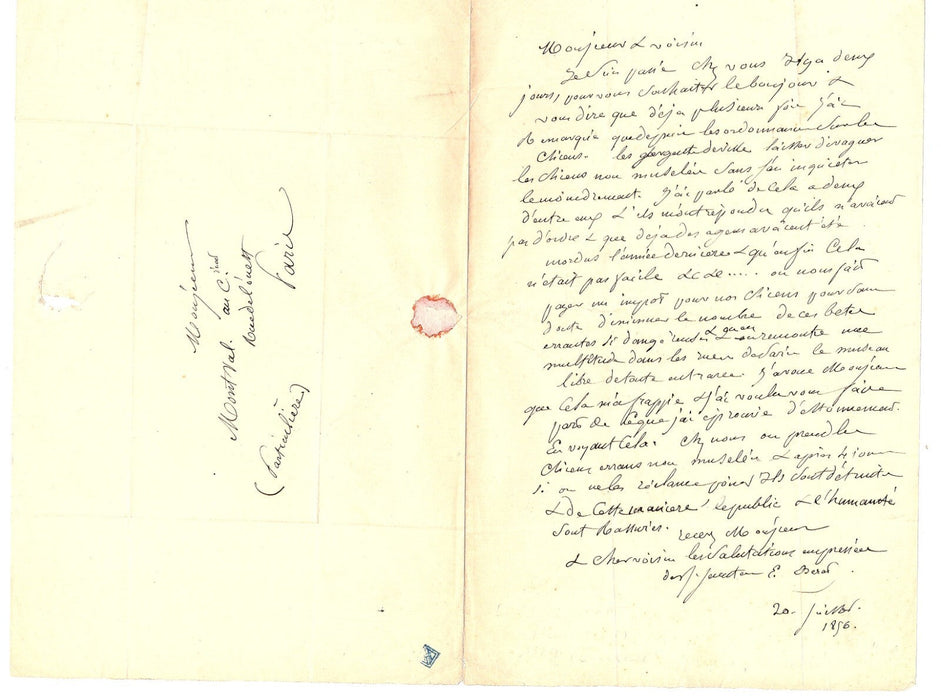 Monsieur
Montval.
au Ciné
Rue de
Paris
(Particulière)
Monsieur & voisin
Je suis passé chez vous il y a deux
jours, pour vous souhaiter le bonjour &
vous dire que déja plusieurs fois j'ai
Remarquée que depuis les ordonnances sur les
chiens. les sergents de ville laisser divaguer
les chiens non muselée sans s'en inquiéter
le moindrement. J'ai parlé de cela a deux
d'entre eux & ils m'ont répondu qu'ils n'avaient
pas d'ordre & que deja des agens avaient été
mordus l'année dernière & qu'enfin cela
n'était pas facile &c &c.... on nous fait
payer un impot pour nos chiens pour sans
doute diminuer le nombre de ces bete
errantes si dangereuses & quand on remonte une
multitude dans les rues de Paris le museau
libre de toute entrave. J'avoue Monsieur
que cela m'a frappée & j'ai voulu vous faire
part de ce que j'ai éprouvé d'étonnement
en voyant cela. chez nous on prend les
chiens errans non muselée & après 4 jours
si on ne les réclame point ils sont détruits
& de cette maniere le public & l'humanité
sont Rassurés. recevez Monsieur
& cher voisin les salutations empressées
de
20. Juillet.
1856.